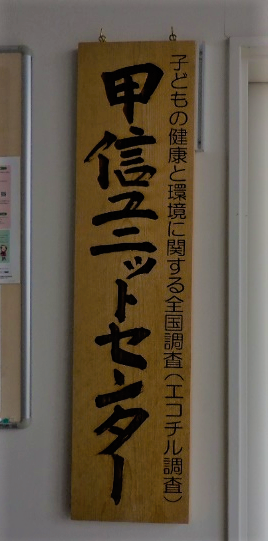 子どもの健康と環境に関する全国調査(エコチル調査)
甲信ユニットセンター